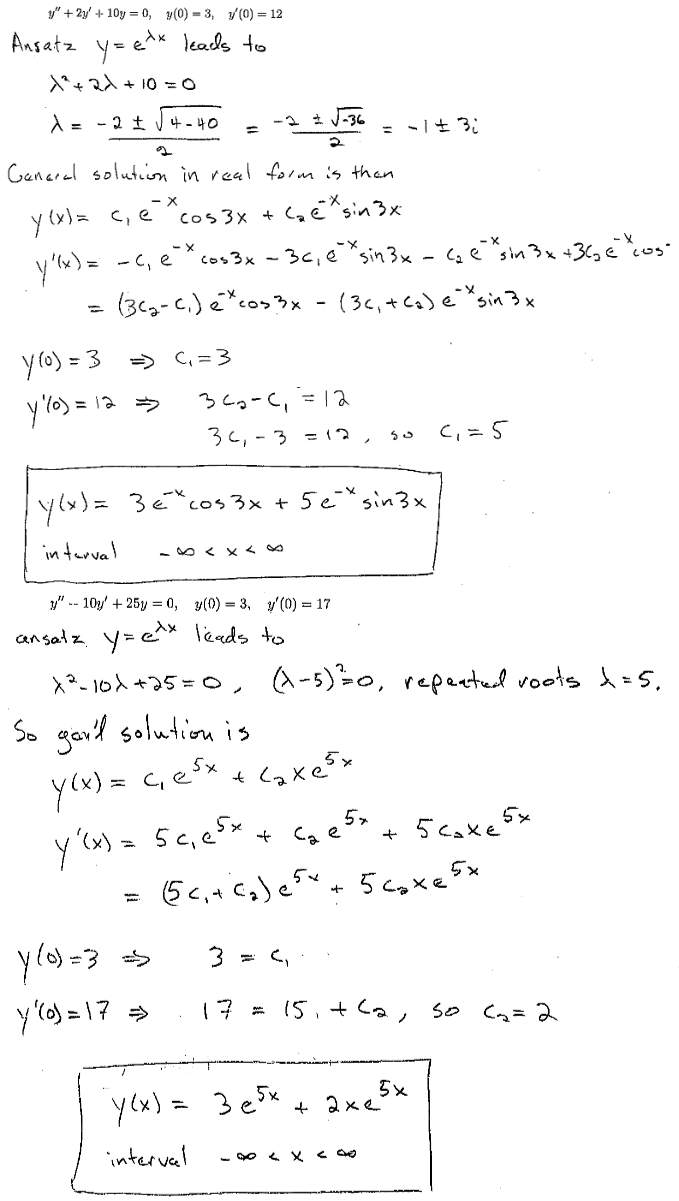 y″ + 2y′ + 10y = 0, y(0) = 3, y′(0) = 12
Ansatz y = e^{λx} leads to
λ² + 2λ + 10 = 0
λ = (-2 ± √(4-40))/2 = (-2 ± √-36)/2 = -1 ± 3i
General solution in real form is then
y(x) = c₁e^{-x}cos3x + c₂e^{-x}sin3x
y'(x) = -c₁e^{-x}cos3x - 3c₁e^{-x}sin3x - c₂e^{-x}sin3x + 3c₂e^{-x}cos
= (3c₂-c₁)e^{-x}cos3x - (3c₁+c₂)e^{-x}sin3x
y(0) = 3 ⇒ c₁ = 3
y'(0) = 12 ⇒ 3c₂-c₁ = 12
3c₁-3 = 12, so c₁ = 5
y(x) = 3e^{-x}cos3x + 5e^{-x}sin3x
interval -∞ < x < ∞
y″ -- 10y′ + 25y = 0, y(0) = 3, y′(0) = 17
ansatz y = e^{λx} leads to
λ²-10λ+25 = 0, (λ-5)² = 0, repeated roots λ = 5.
So gen'l solution is
y(x) = c₁e^{5x} + c₂xe^{5x}
y'(x) = 5c₁e^{5x} + c₂e^{5x} + 5c₂xe^{5x}
= (5c₁+c₂)e^{5x} + 5c₂xe^{5x}
y(0) = 3 ⇒ 3 = c₁
y'(0) = 17 ⇒ 17 = 15 + c₂, so c₂ = 2
y(x) = 3e^{5x} + 2xe^{5x}
interval -∞ < x < ∞